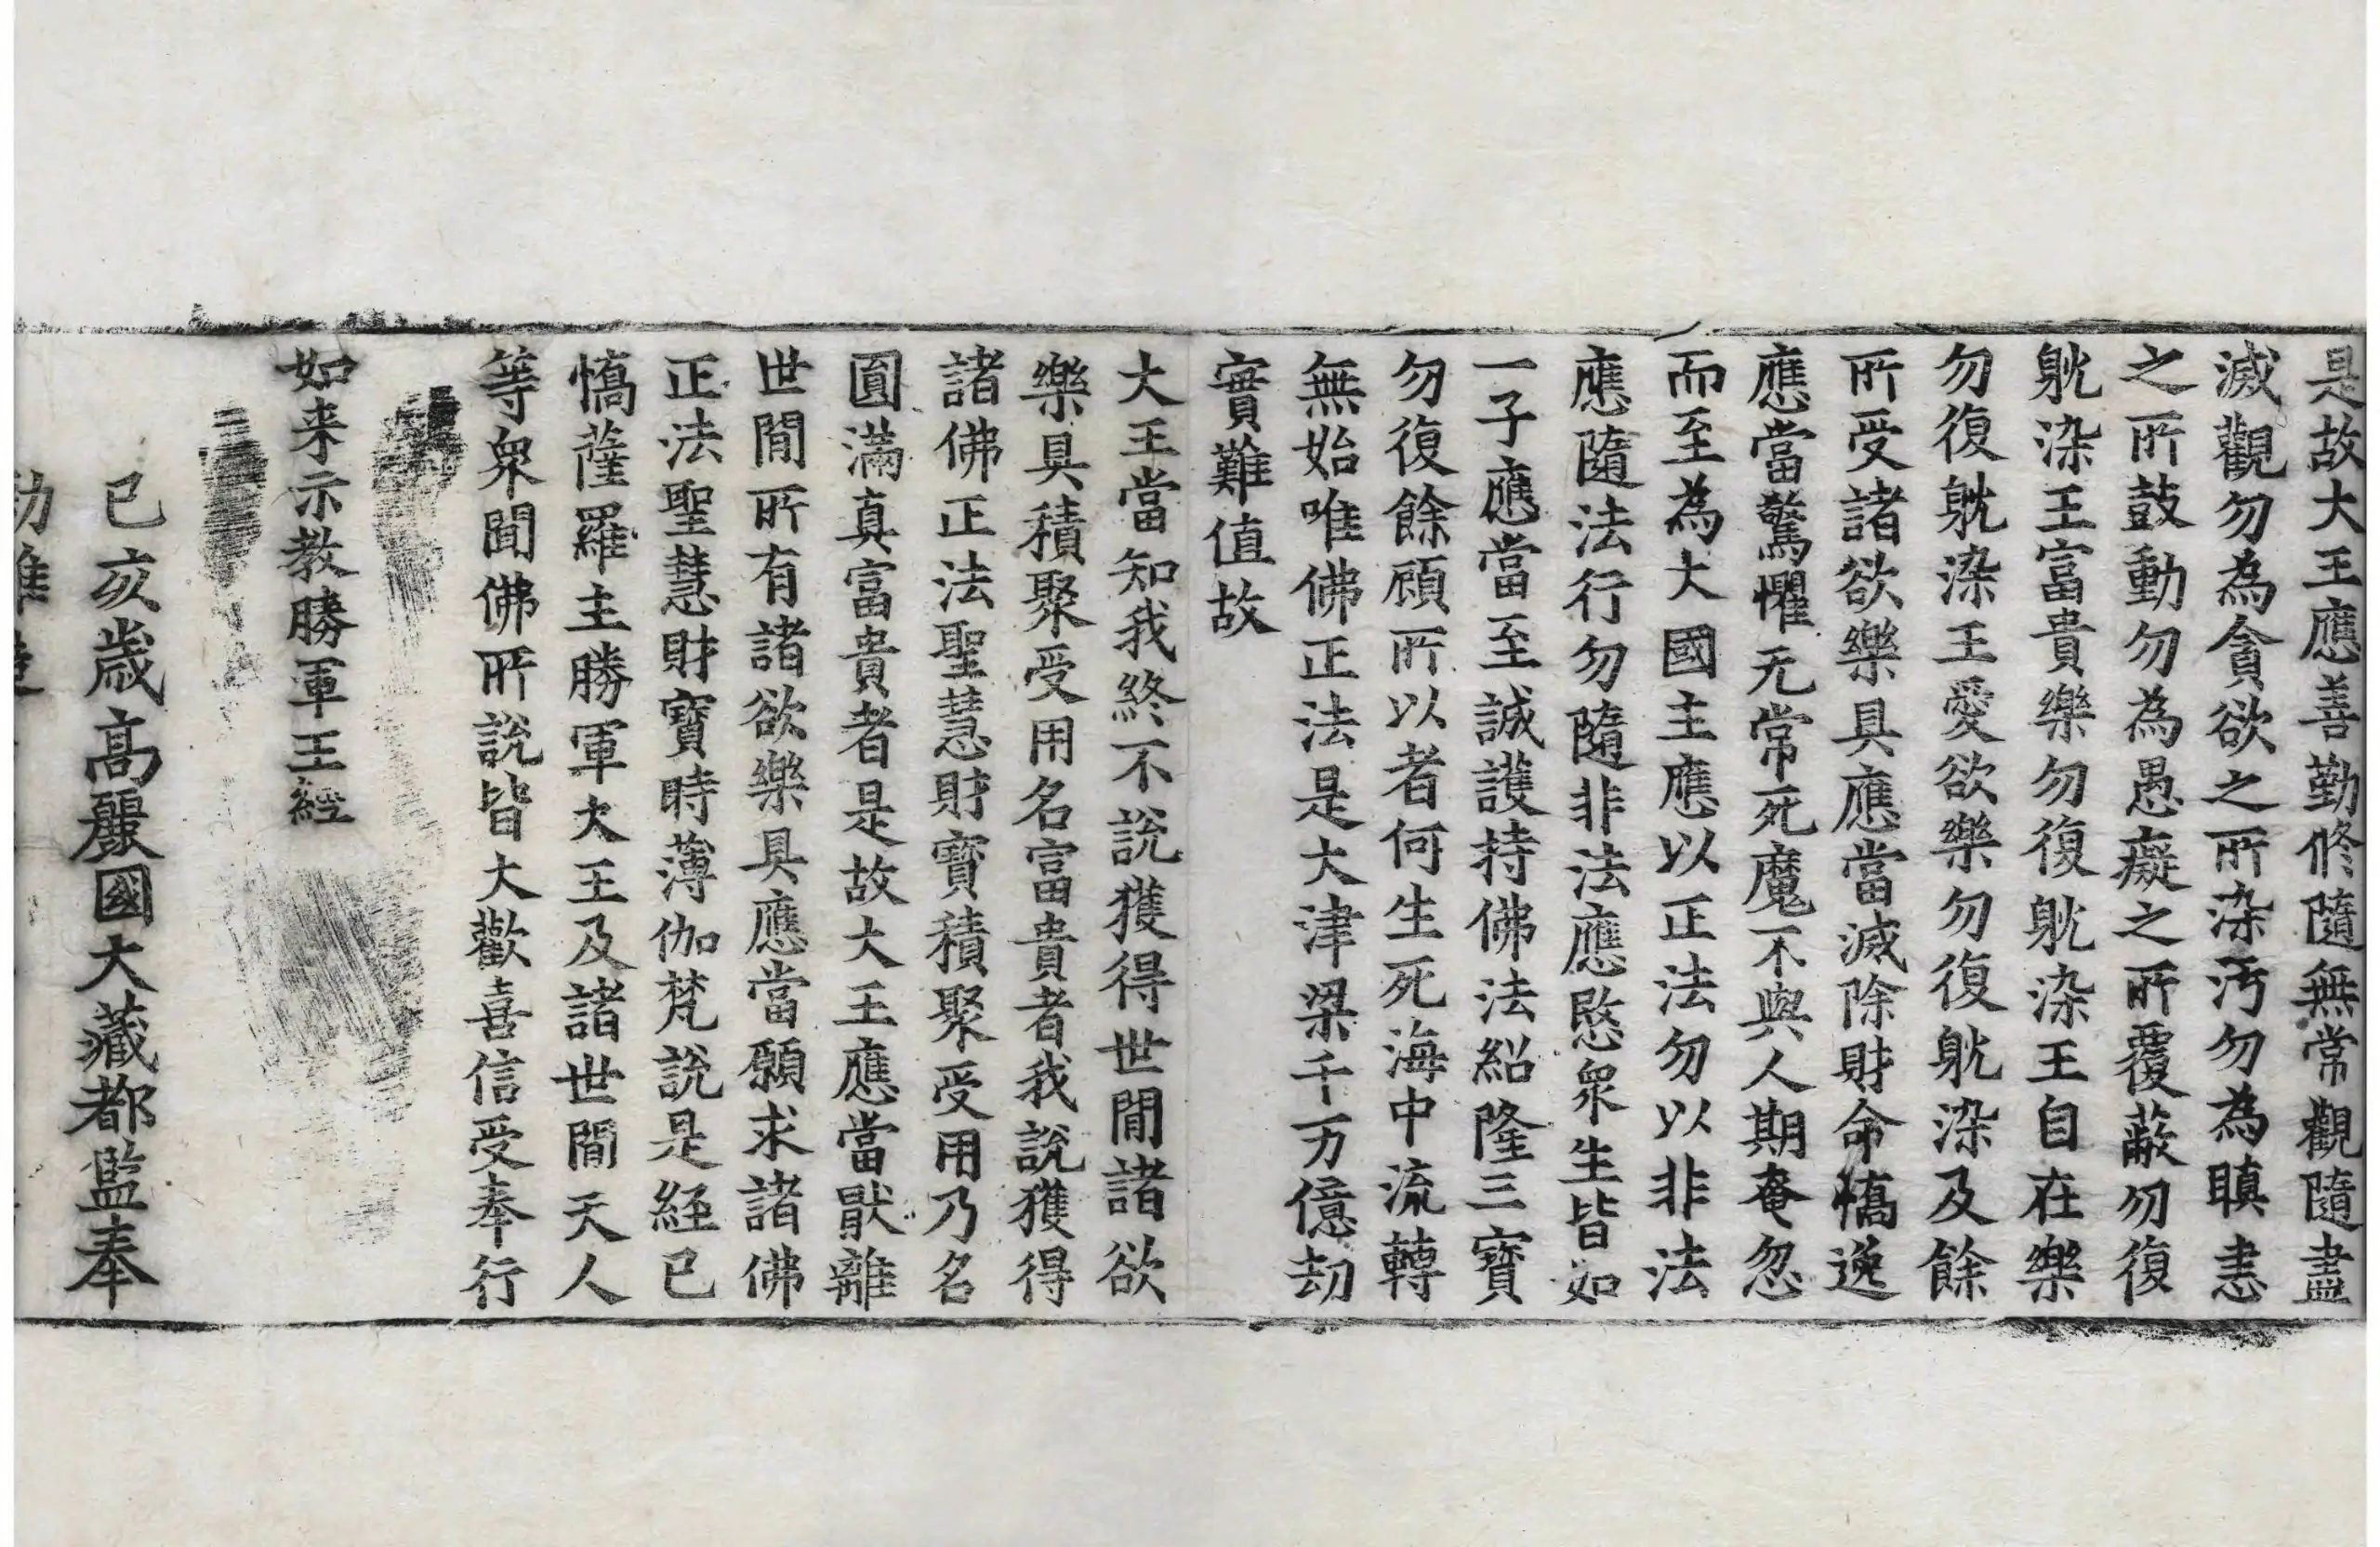 是故大王應善勤修隨無常觀隨盡
滅觀勿為貪欲之所染汚勿為瞋恚
之所鼓動勿為愚癡之所覆蔽勿復
躭染王富貴樂勿復躭染王自在樂
勿復躭染王愛欲樂勿復躭染及餘
所受諸欲樂具應當滅除財命憍逸
應當驚懼无常死魔不與人期奄忽
而至為大國主應以正法勿以非法
應隨法行勿隨非法應愍衆生皆如
一子應當至誠護持佛法紹隆三寶
勿復餘顧所以者何生死海中流轉
無始唯佛正法是大津梁千万億劫
實難值故
大王當知我終不說獲得世間諸欲
樂具積聚受用名富貴者我說獲得
諸佛正法聖慧財寶積聚受用乃名
圓滿真富貴者是故大王應當猒離
世間所有諸欲樂具應當願求諸佛
正法聖慧財寶時薄伽梵說是経已
憍薩羅主勝軍大王及諸世間天人
等衆聞佛所說皆大歡喜信受奉行
如来示教勝軍王經
己亥歲高麗國大藏都監奉